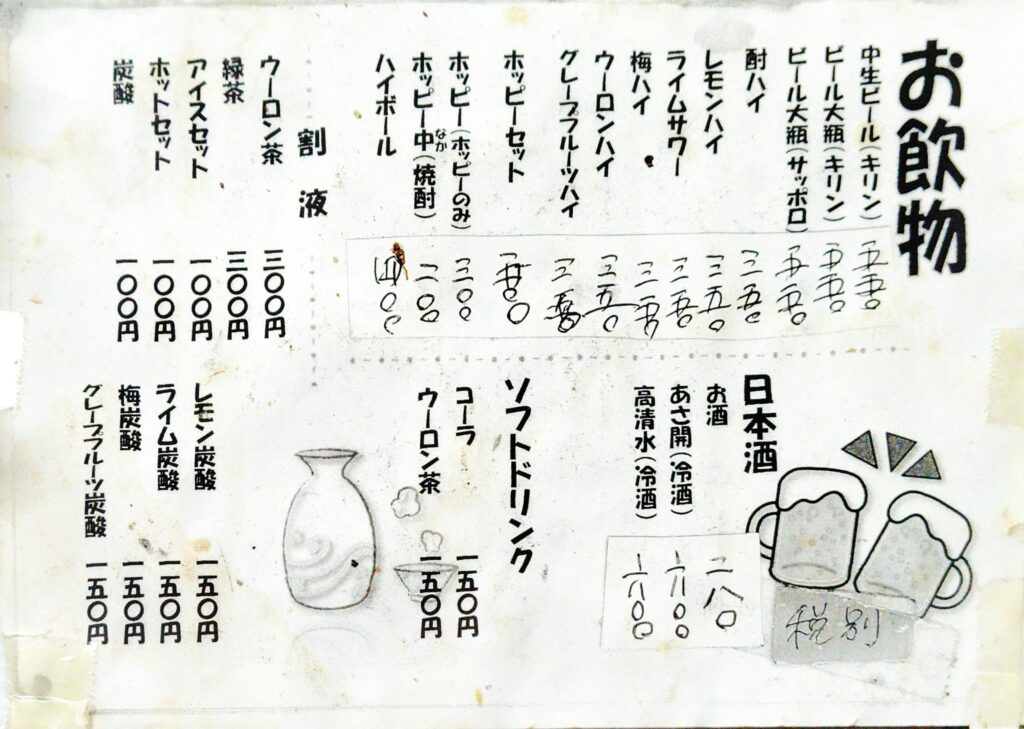 お飲物
中生ビール(キリン) 五五〇
ビール大瓶(キリン) 五五〇
ビール大瓶(サッポロ) 五五〇
酎ハイ 三五〇
レモンハイ 三五〇
ライムサワー 三五〇
梅ハイ 三五〇
ウーロンハイ 三五〇
グレープフルーツハイ 三五〇
ホッピーセット
ホッピー(ホッピーのみ) 三〇〇
ホッピー中(焼酎) 二〇〇
なか
ハイボール 四〇〇
割液
ウーロン茶 三〇〇円
緑茶 三〇〇円
アイスセット 一〇〇円
ホットセット 一〇〇円
炭酸 一〇〇円
日本酒
お酒 二八〇
あさ開(冷酒) 六〇〇
高清水(冷酒) 六〇〇
税別
ソフトドリンク
コーラ 一五〇円
ウーロン茶 一五〇円
レモン炭酸 一五〇円
ライム炭酸 一五〇円
梅炭酸 一五〇円
グレープフルーツ炭酸 一五〇円